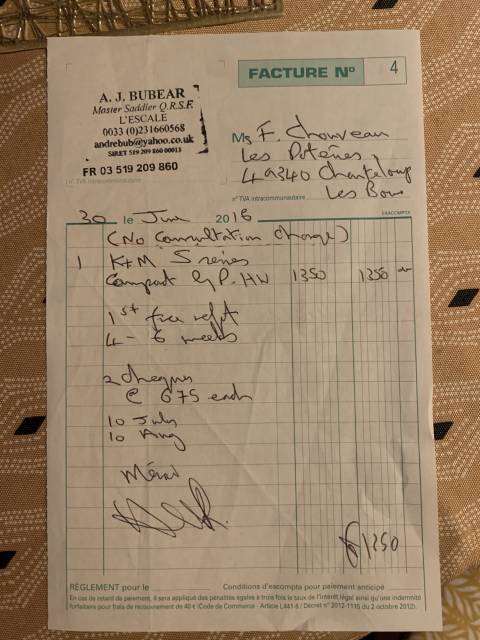 A. J. BUBEAR
Master Saddler Q.R.S.F.
L'ESCALE
0033 (0)231660568
andrebub@yahoo.co.uk
SIRET 519 209 860 00013
FR 03 519 209 860
n° TVA intracommunautaire
FACTURE N° 4
Ms F. Chouveau
Les Poteries,
49340 Chanteloup
Les Bois
n° TVA intracommunautaire
30 le Jun 2016
EXACOMPTA
(No Consultation Charge)
1 K+M S
Compact GP. HW 1350 1350
1st free refit
4 - 6 weeks
2 cheques
@ 675 each
10 July
10 Aug
Merci
€1350
RÈGLEMENT pour le
Conditions d'escompte pour paiement anticipé
En cas de retard de paiement, il sera appliqué des pénalités égales à trois fois le taux de l'intérêt légal ainsi qu'une indemnité
forfaitaire pour frais de recouvrement de 40 € (Code de Commerce - Article L441-6 / Décret n° 2012-1115 du 2 octobre 2012).